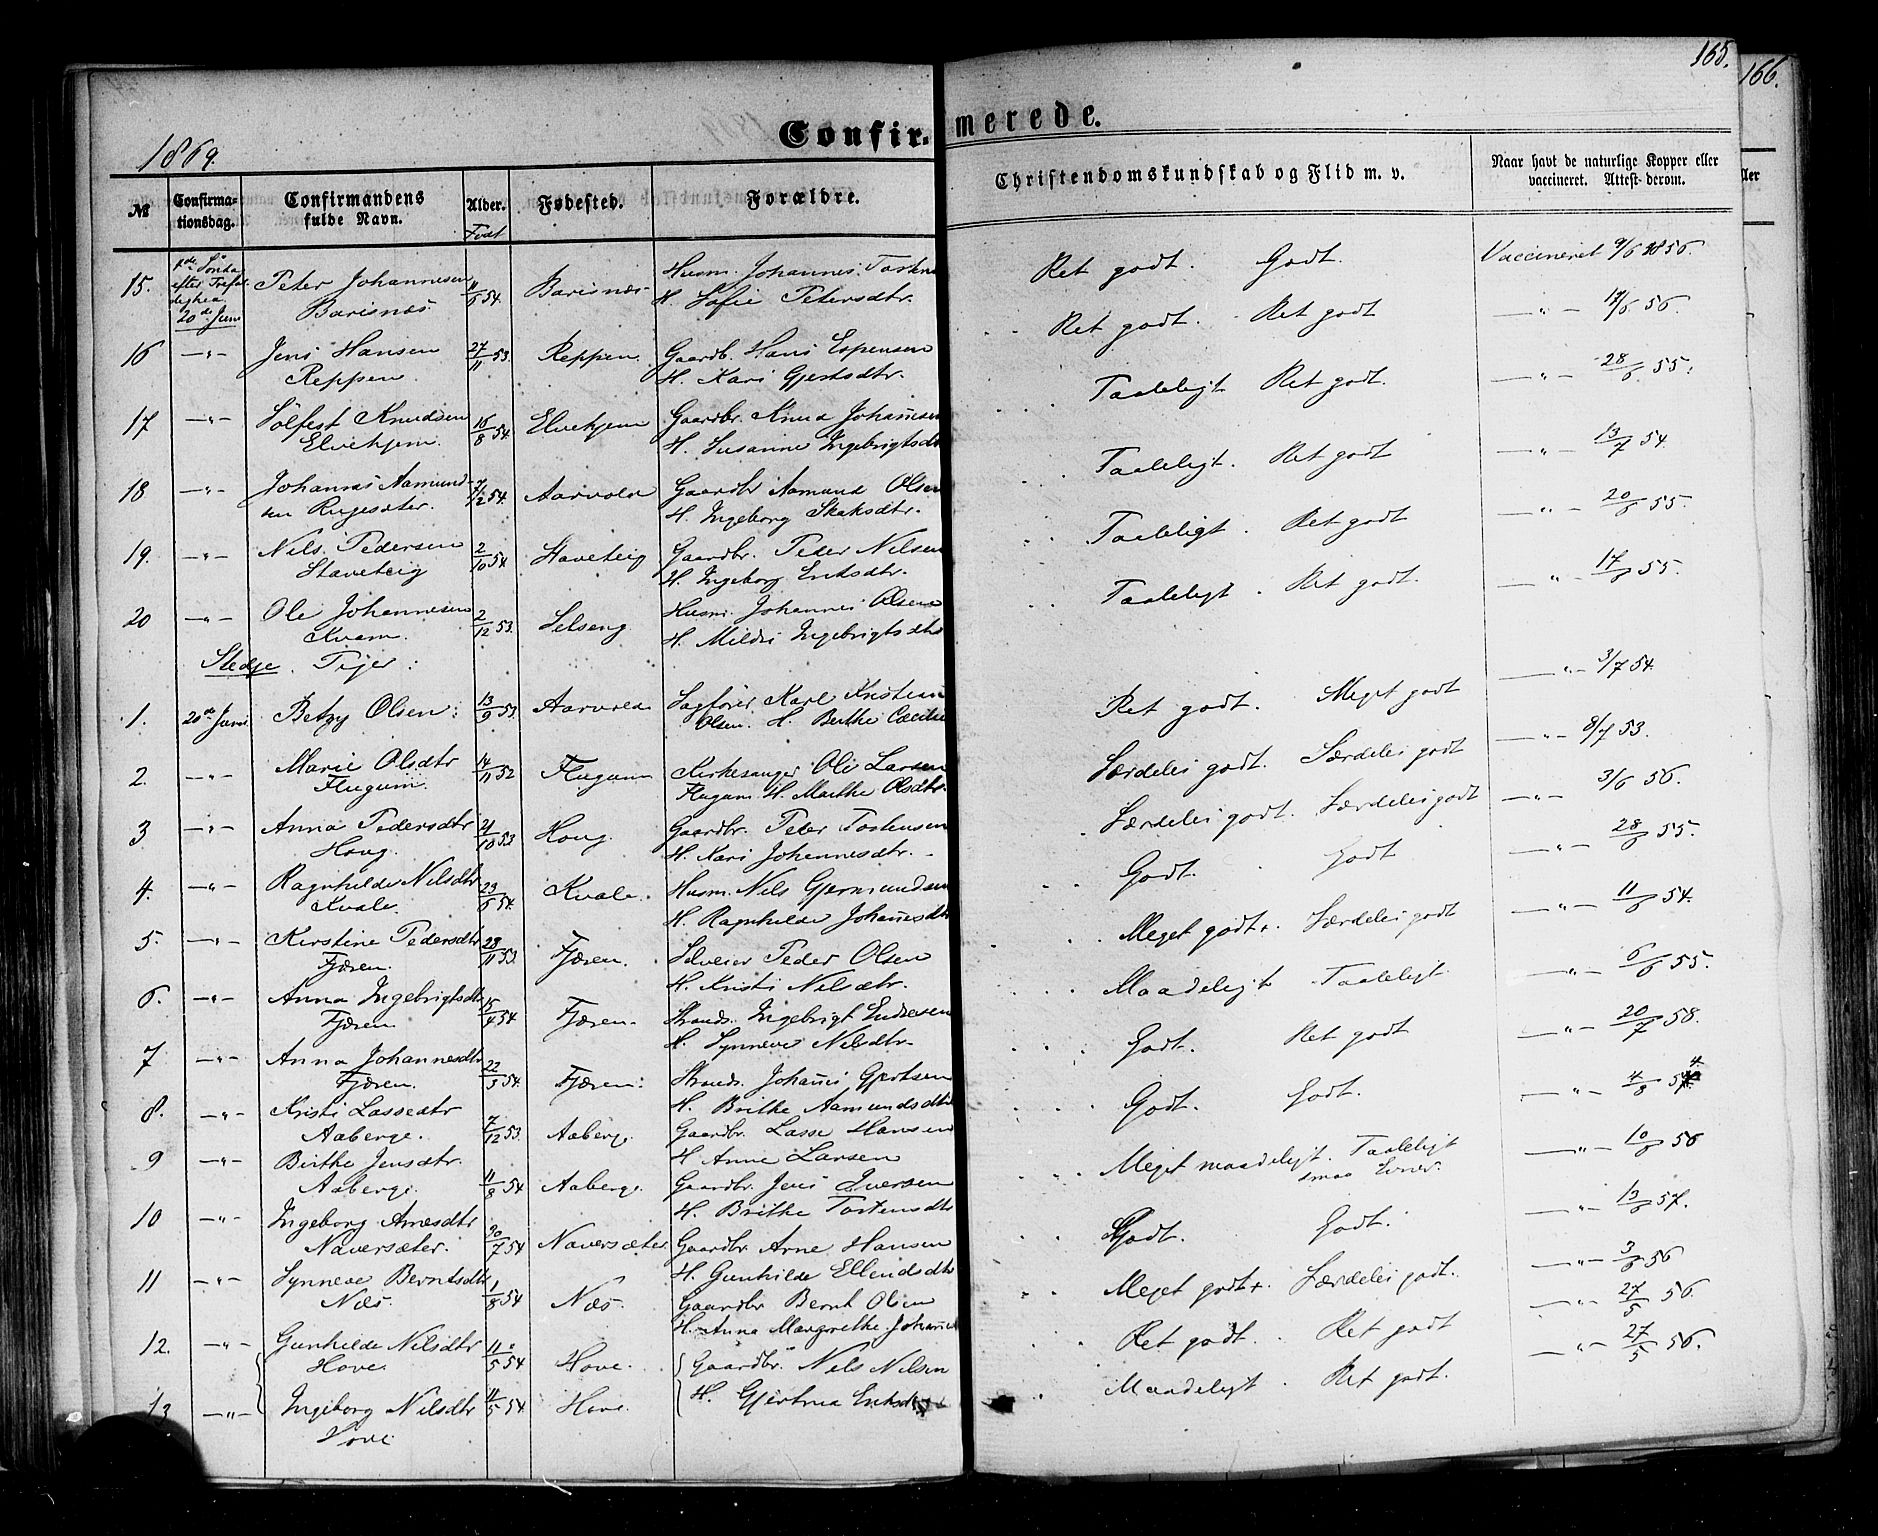 165.
166.
1869.
Confirmerede.
№ Confirmationsdag. Confirmandens fulde Navn. Alder. Født Fødested. Forældre. Christendomskundskab og Flid m. v. Naar havt de naturlige Kopper eller vaccineret. Attest derom.
15. efter 20de Juni Peter Johannesen Barisnæs 11/6 54. Barisnæs Husm. Johannes Torstens H. Sofie Petersdtr. Ret godt. Godt. Vaccineret 9/6 1856.
16 —"— Jens Hansen Reppen. 27/11 53. Reppen. Gaardb. Hans Espensen H. Kari Gjertsdtr. Ret godt. Ret godt —"— 56.
17 —"— Sølfest Knudsen Elvekjem. 16/8 54. Elvekjem Gaardbr. Knud Johannesen H. Susanne Ingebrigtsdtr Taaleligt Ret godt. —"— 28/6 55.
18 —"— Johannes Aamundsen Rugesæter. 54. Aarvold Gaardbr Aamund Olsen H. Ingeborg Skaksdtr. Taaleligt. Ret godt —"— 13/7 54.
19. —"— Nils Pedersen Staveteig 2/10 54 Staveteig Gaardbr. Peder Nilsen H. Ingeborg Eriksdtr. Taaleligt. Ret godt —"— 20/6 55.
20 —"— Ole Johannesen Kvam. 2/12 53. Selseng Husm. Johannes Olsen H. Mildri Ingebrigtsdtr Taaleligt. Ret godt. —"— 17/6 55.
Stedje. Piger:
1. 20de Juni Betzy Olsen: 13/9 53. Aarvold Sagfører Karl Kristian Olsen. H. Berthe Cæcilie Ret godt. Meget godt —"— 3/7 54.
2. —"— Marie Olsdtr Flugum. 14/11 52 Flugum Kirkesanger Ole Larsen Flugum. H. Marthe Olsdtr. Særdeles godt. Særdeles godt —"— 8/7 53.
3 —"— Anna Pedersdtr Houg. 21/10 53 Houg. Gaardbr. Peder Torstensen H. Kari Johannesdtr. Særdeles godt. Særdeles godt —"— 3/6 56.
4. —"— Ragnhilde Nilsdtr Kvale. 23/6 54. Kvale. Husm. Nils Gjermundsen H. Ragnhilde Johannesdtr Godt. Godt —"— 28/6 55.
5. —"— Kerstine Pedersdtr Fjæren. 28/11 53. Fjæren. Selveier Peder Olsen H. Kristi Nilsdtr. Meget godt+. Særdeles godt —"— 11/6 54.
6. —"— Anna Ingebrigtsdtr Fjæren 15/4 54 Fjæren. Strands. Ingebrigt Endresen H. Synneve Nilsdtr. Maadeligt Taaleligt —"— 6/6 55.
7 —"— Anna Johannesdtr Fjæren. 22/3 54. Fjæren. Strands. Johannes Gjertsen H. Brithe Aamundsdtr Godt. Ret godt —"— 20/7 58.
8. —"— Kristi Lassedtr Aaberge. 7/12 53. Aaberge. Gaardbr. Lasse Hansen H. Anne Larsen Godt. Godt. —"— 4/8 54.
9 —"— Birthe Jensdtr. Aaberge. 11/8 54 Aaberge. Gaardbr. Jens Iversen H. Brithe Torstensdtr Meget maadeligt. Taaleligt smaa Evner. —"— 10/6 56
10 —"— Ingeborg Arnesdtr Naversæter. 30/7 54 Naversæter Gaardbr. Arne Hansen H. Gunhilde Ellendsdtr Godt. Godt. —"— 13/6 57.
11 —"— Synneve Berntsdtr Næs. 1/8 54 Næs. Gaardbr Bernt Olsen H. Anna Margrethe Johannes Meget godt+. Særdeles godt. —"— 3/6 56
12. —"— Gunhilde Nilsdtr Hove. 11/5 54 Hove. Gaardbr. Nils Nilsen H. Gjertrud Eriksdtr Ret godt. Ret godt —"— 27/5 56.
13 —"— Ingeborg Nilsdtr Hove 11/5 54 Hove. Maadeligt. Ret godt. —"— 27/5 56.